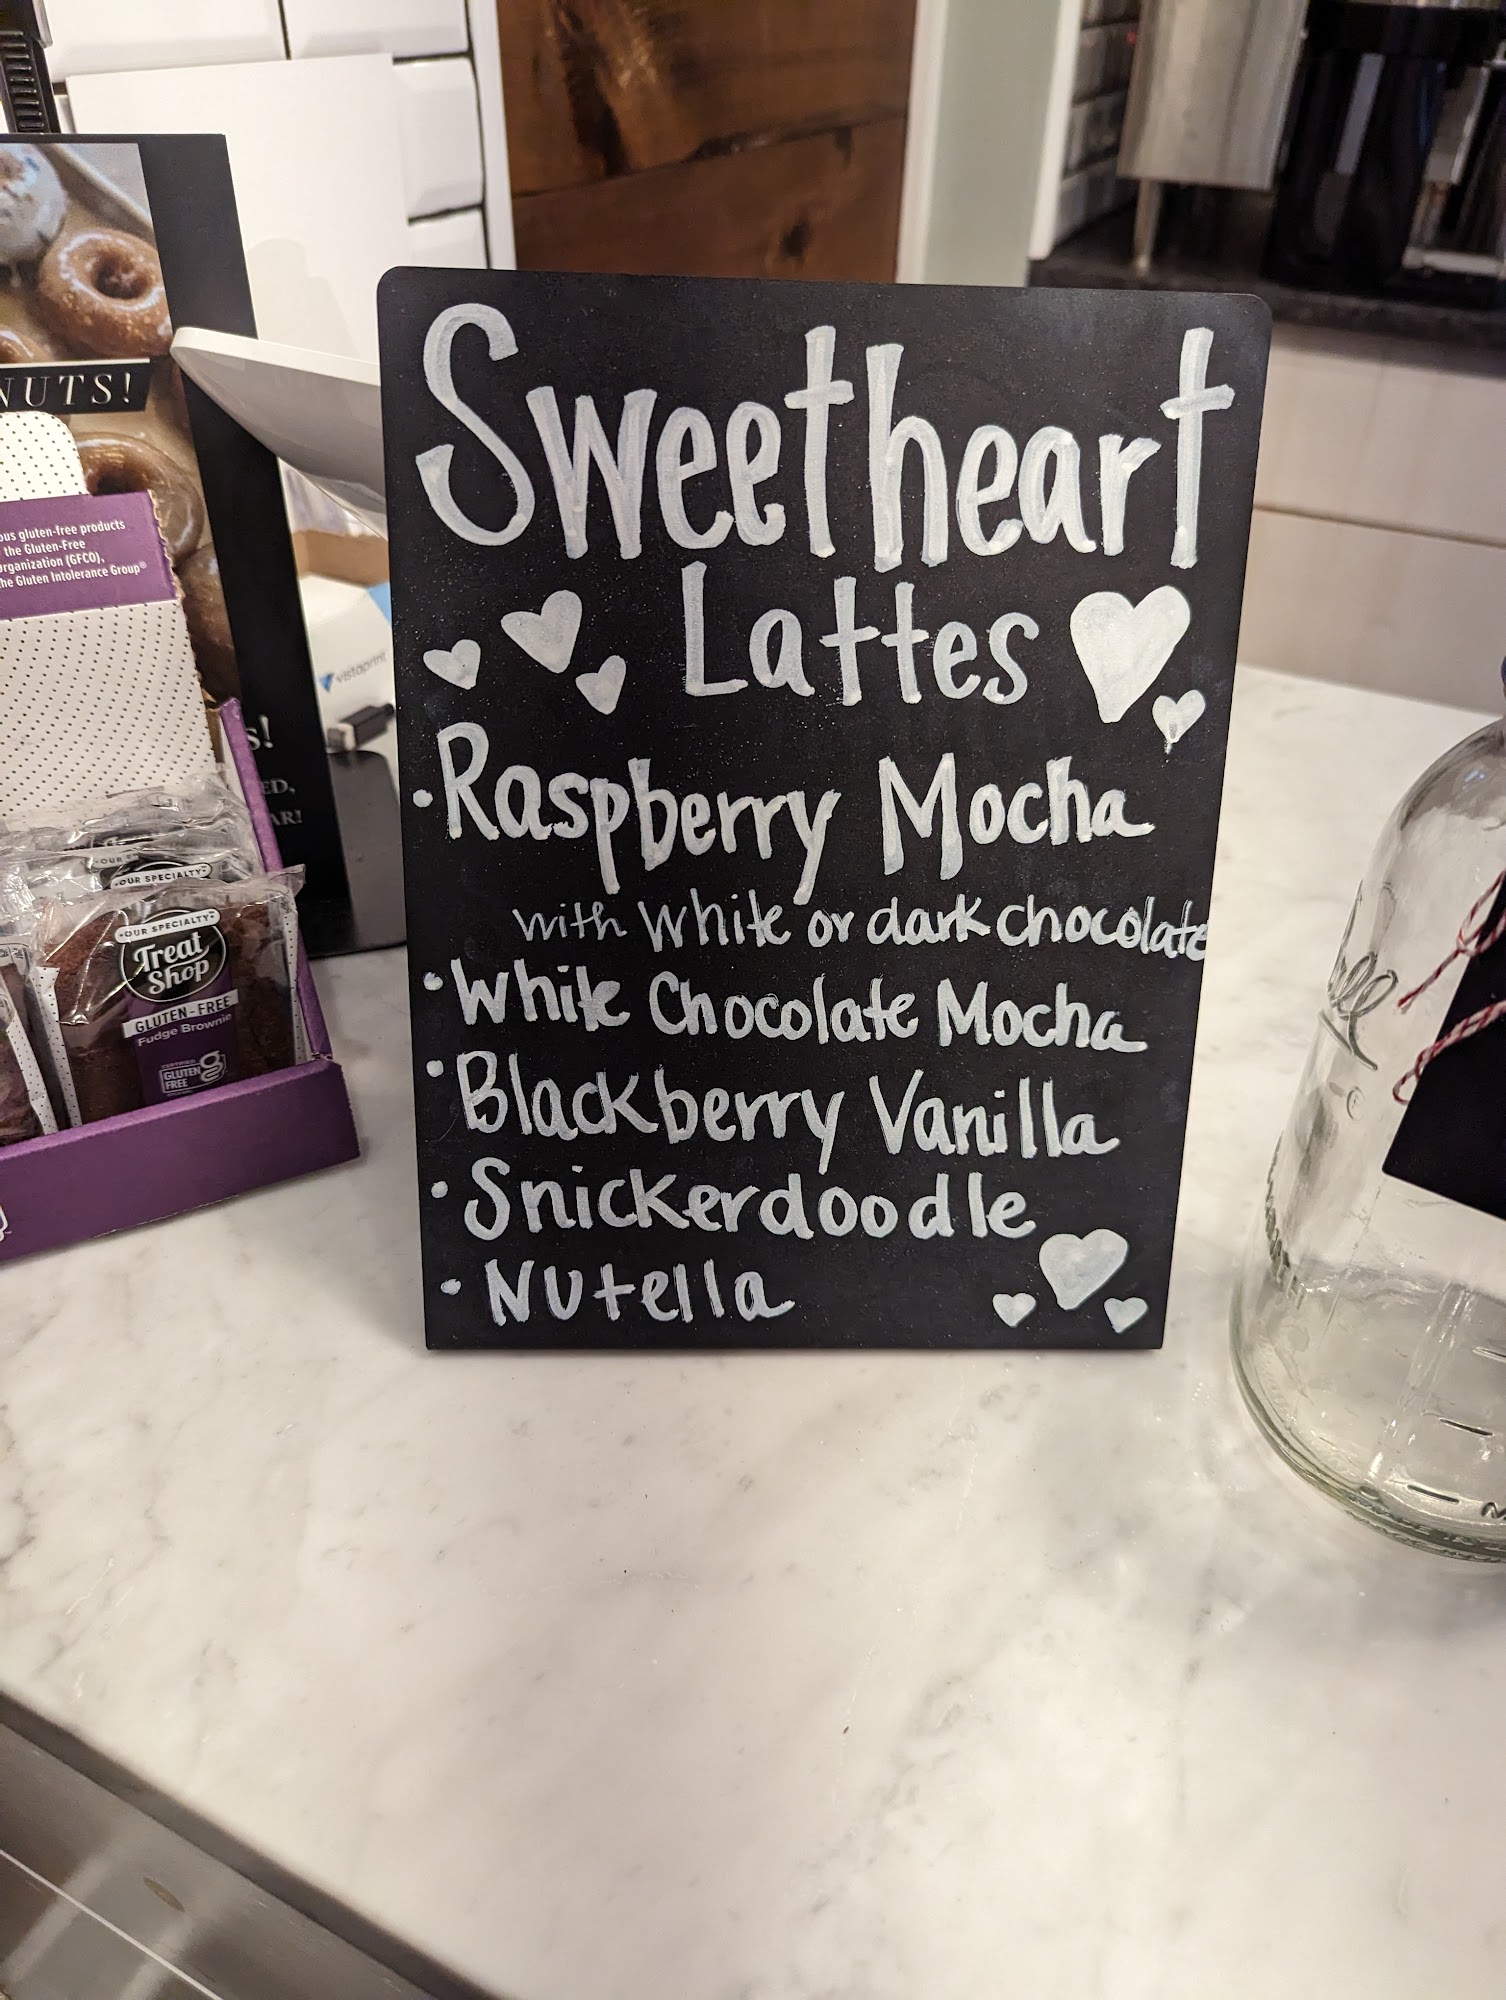 Sweetheart
Lattes
• Raspberry Mocha
with white or dark chocolate
• White Chocolate Mocha
• Blackberry Vanilla
• Snickerdoodle
• Nutella
NUTS!
gluten-free products
the Gluten-Free
(GFCO),
the Gluten Intolerance Group®
vistaprint
•OUR SPECIALTY•
•OUR SPECIALTY•
Treat
Shop
GLUTEN-FREE
Fudge Brownie
CERTIFIED
GLUTEN
FREE